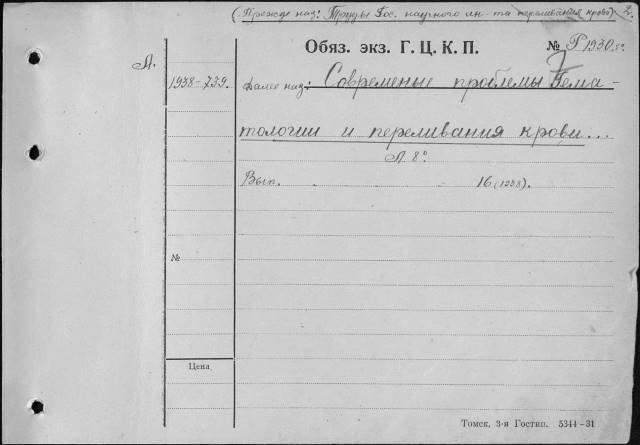 (Прежде наз: Труды Гос. научного ин-та переливания крови) 2.
Обяз. экз. Г. Ц. К. П. № Р1930
Л.
1938-739.
Далее наз: Современые проблемы Гема-
тологии и переливания крови...
Л. 8°
Вып. 16 (1938).
№
Цена
Томск, 3-я Гостип. 5344-31